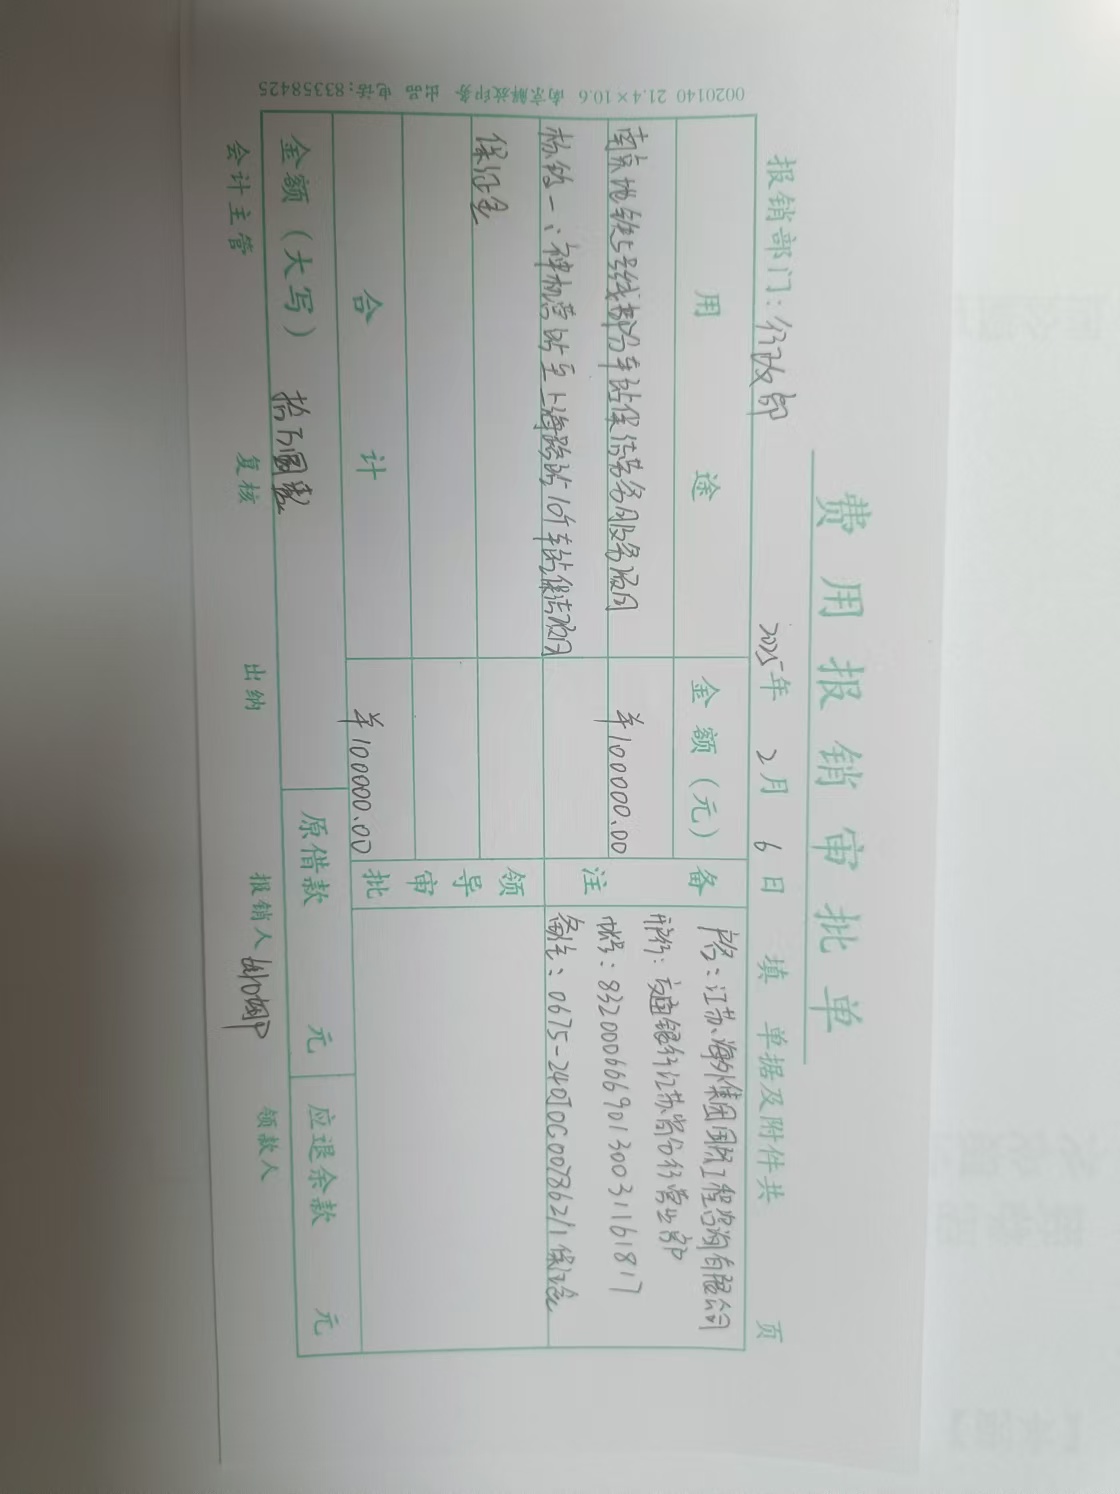 费用报销审批单
报销部门：行政部 2025年2月6日填 单据及附件共 页
用途 金额（元） 备注
南京地铁5号线部分车站保洁劳务服务项目 ￥100000.00
标段一：神机营站至上海路站10个车站保洁项目
保证金
户名：江苏海外集团国际工程咨询有限公司
开行：交通银行江苏省分行营业部
帐号：832000666901300311617
备注：0675-240JOC007862/1保证金
合计 ￥100000.00
领导审批
金额（大写） 拾万圆整 原借款 元 应退余款 元
会计主管 复核 出纳 报销人 领款人
0020140 21.4×10.6 南京解放印务 出品 电话：83358425